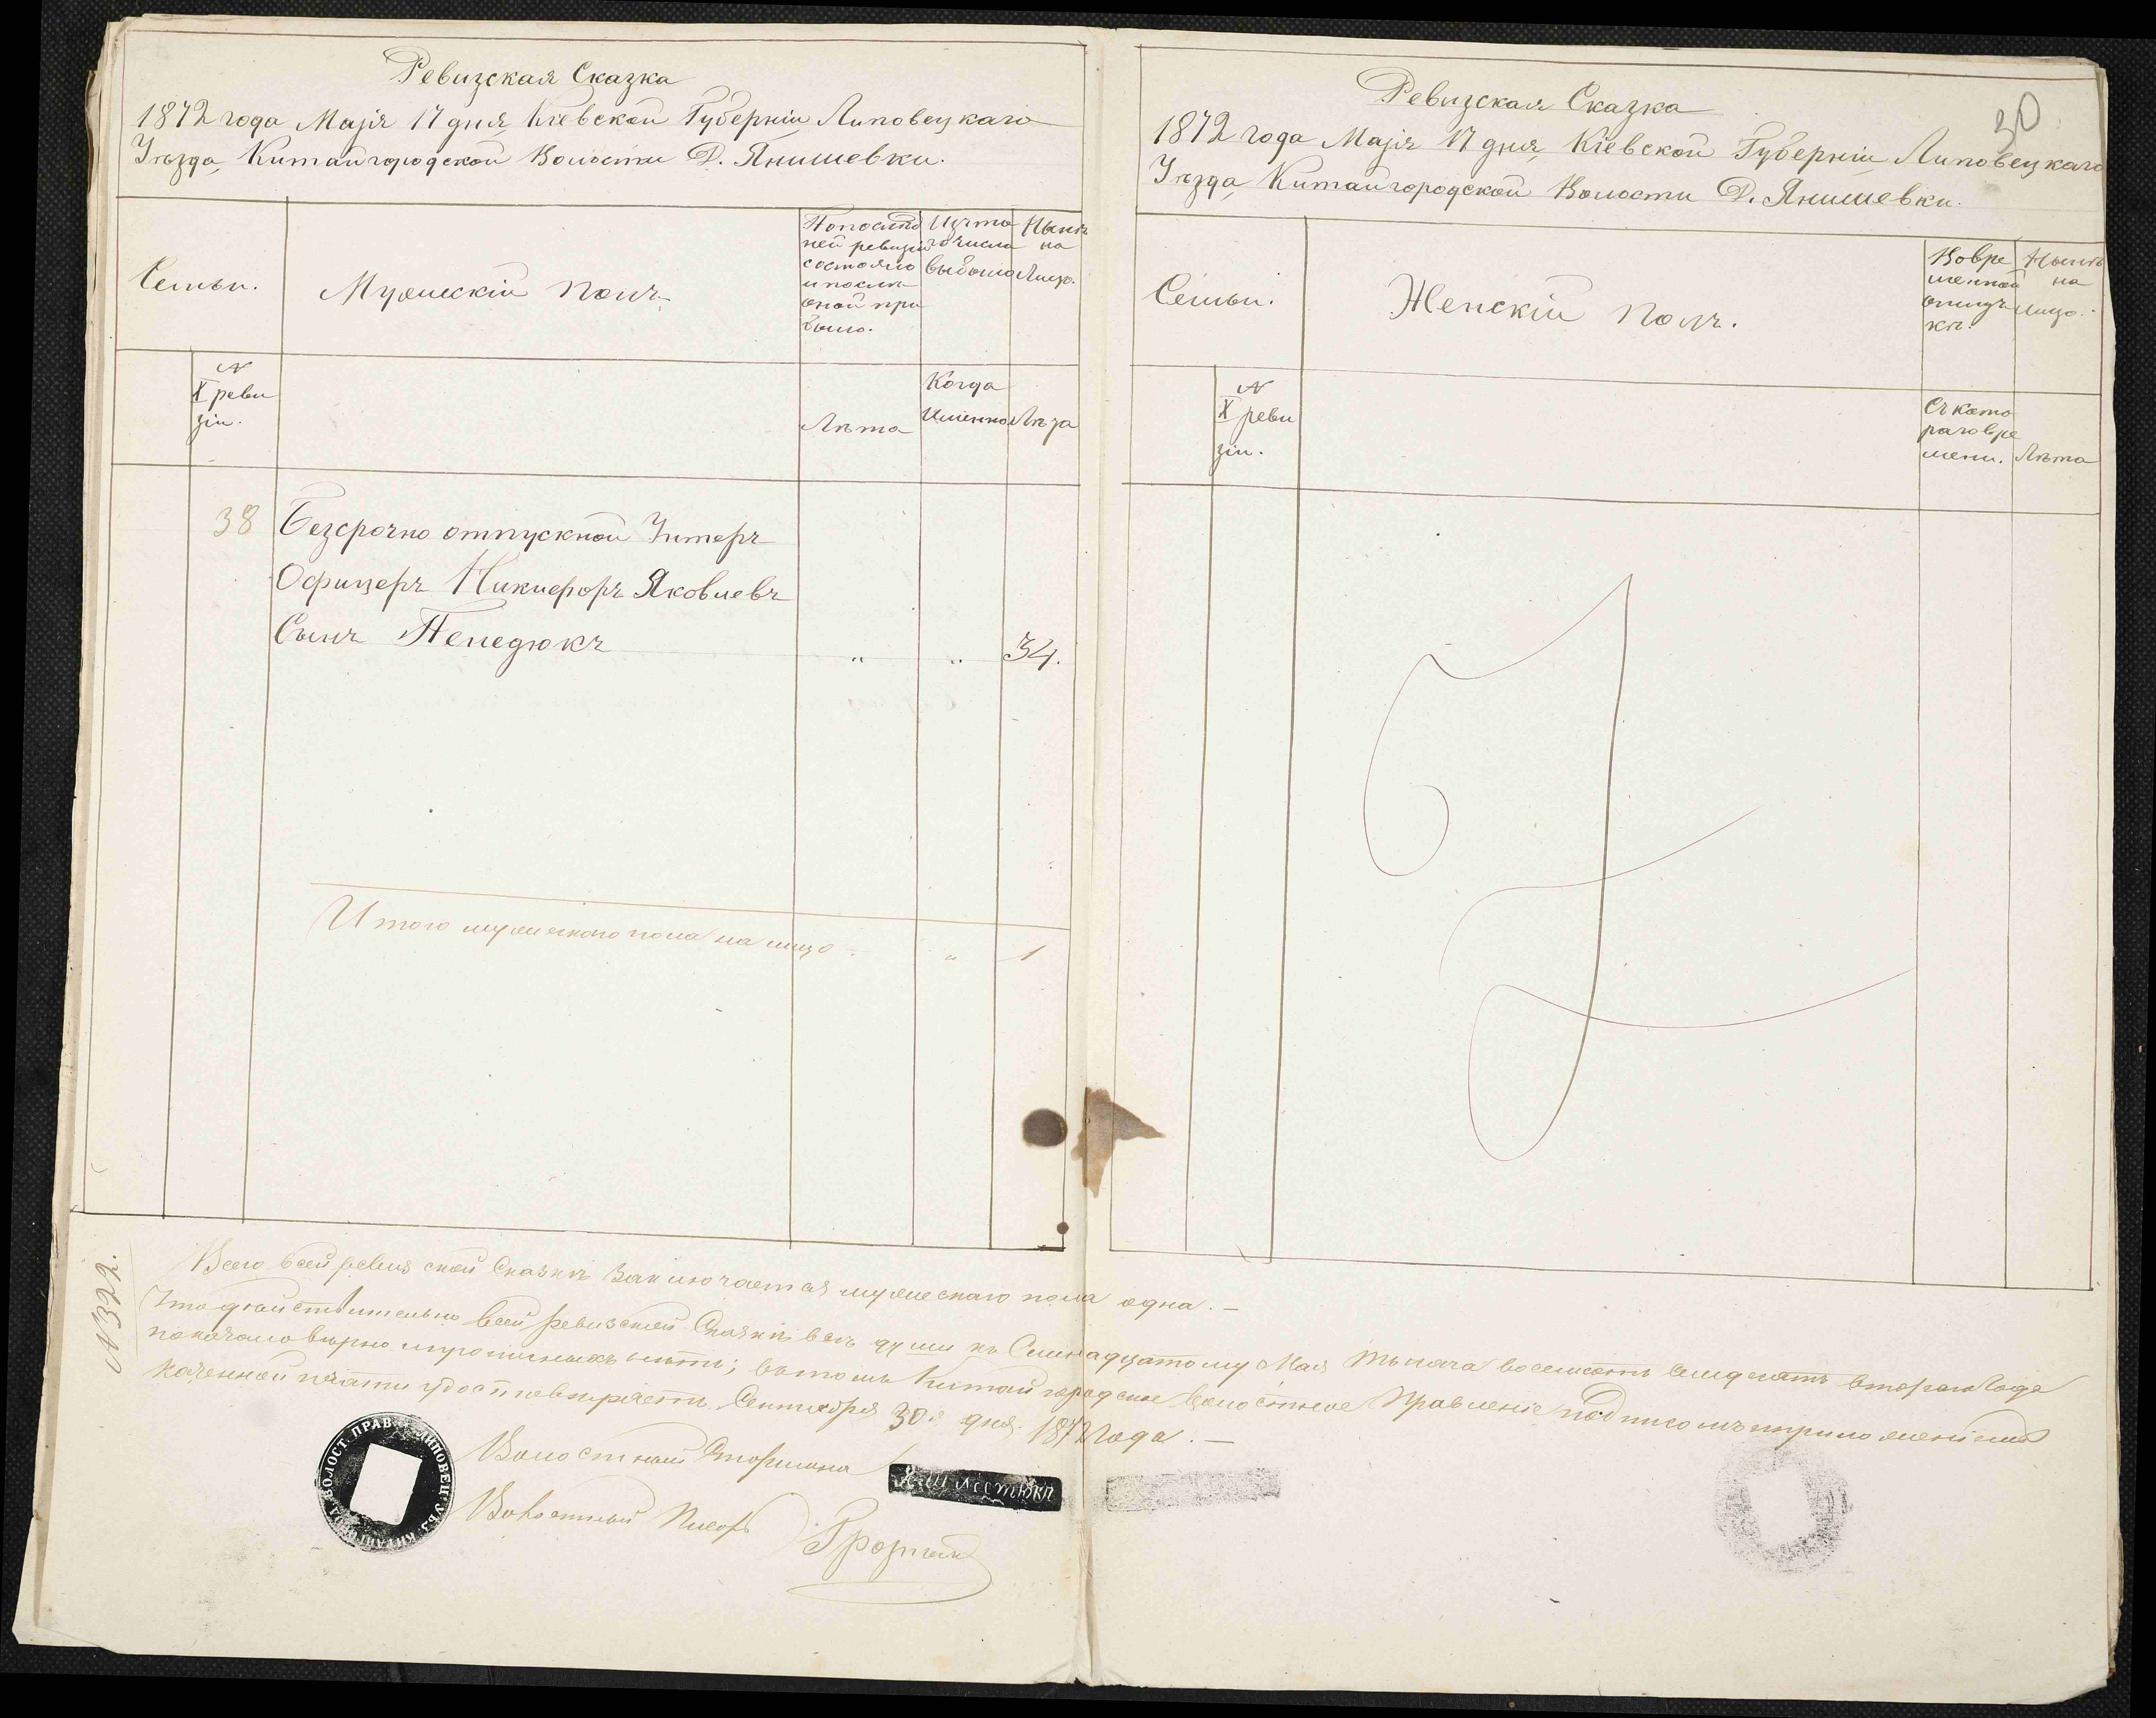 Ревизская Сказка
1872 года Маія 17 дня, Кіевской Губерніи Липовецкаго
Уѣзда, Китайгородской Волости Д. Янишевки.
Семьи.
Мужескій полъ
По послѣд
ней ревизіи
состояло
и послѣ
оной при
было.
Изъ то
го числа
выбыло
Нынѣ
на
Лицо.
N
X реви
зіи.
Лѣта
Когда
Именно
Лѣта
38
Безсрочно отпускной Унтеръ
Офицеръ Никифоръ Яковлевъ
Сынъ Пепедюкъ
"
"
34.
Итого мужескаго пола на лицо
"
1
30
Ревизская Сказка
1872 года Маія 17 дня, Кіевской Губерніи Липовецкаго
Уѣзда, Китайгородской Волости Д. Янишевки.
Семьи.
Женскій полъ.
Во вре
менной
отлуч
кѣ.
Нынѣ
на
лицо.
N
X реви
зіи.
Съ кото
раго вре
мени.
Лѣта
N 1322.
Всего в сей ревизской Сказкѣ заключается мужескаго пола одна. —
Что дѣйствительно в сей ревизской Сказкѣ всѣ души къ Семнадцатому Мая Тысяча восемьсотъ семдесятъ втораго Года
показано вѣрно и прописныхъ нѣтъ; въ томъ Китайгородское Волостное Правленіе подписомъ и приложеніемъ
казенной печати удостовѣряетъ. Сентября 30 дня. 1872 года. —
Волостный Старшина
Волостный Писарь
ВОЛОСТ. ПРАВ. ЛИПОВЕЦ. УѢЗ. КИТАЙГОРОД.